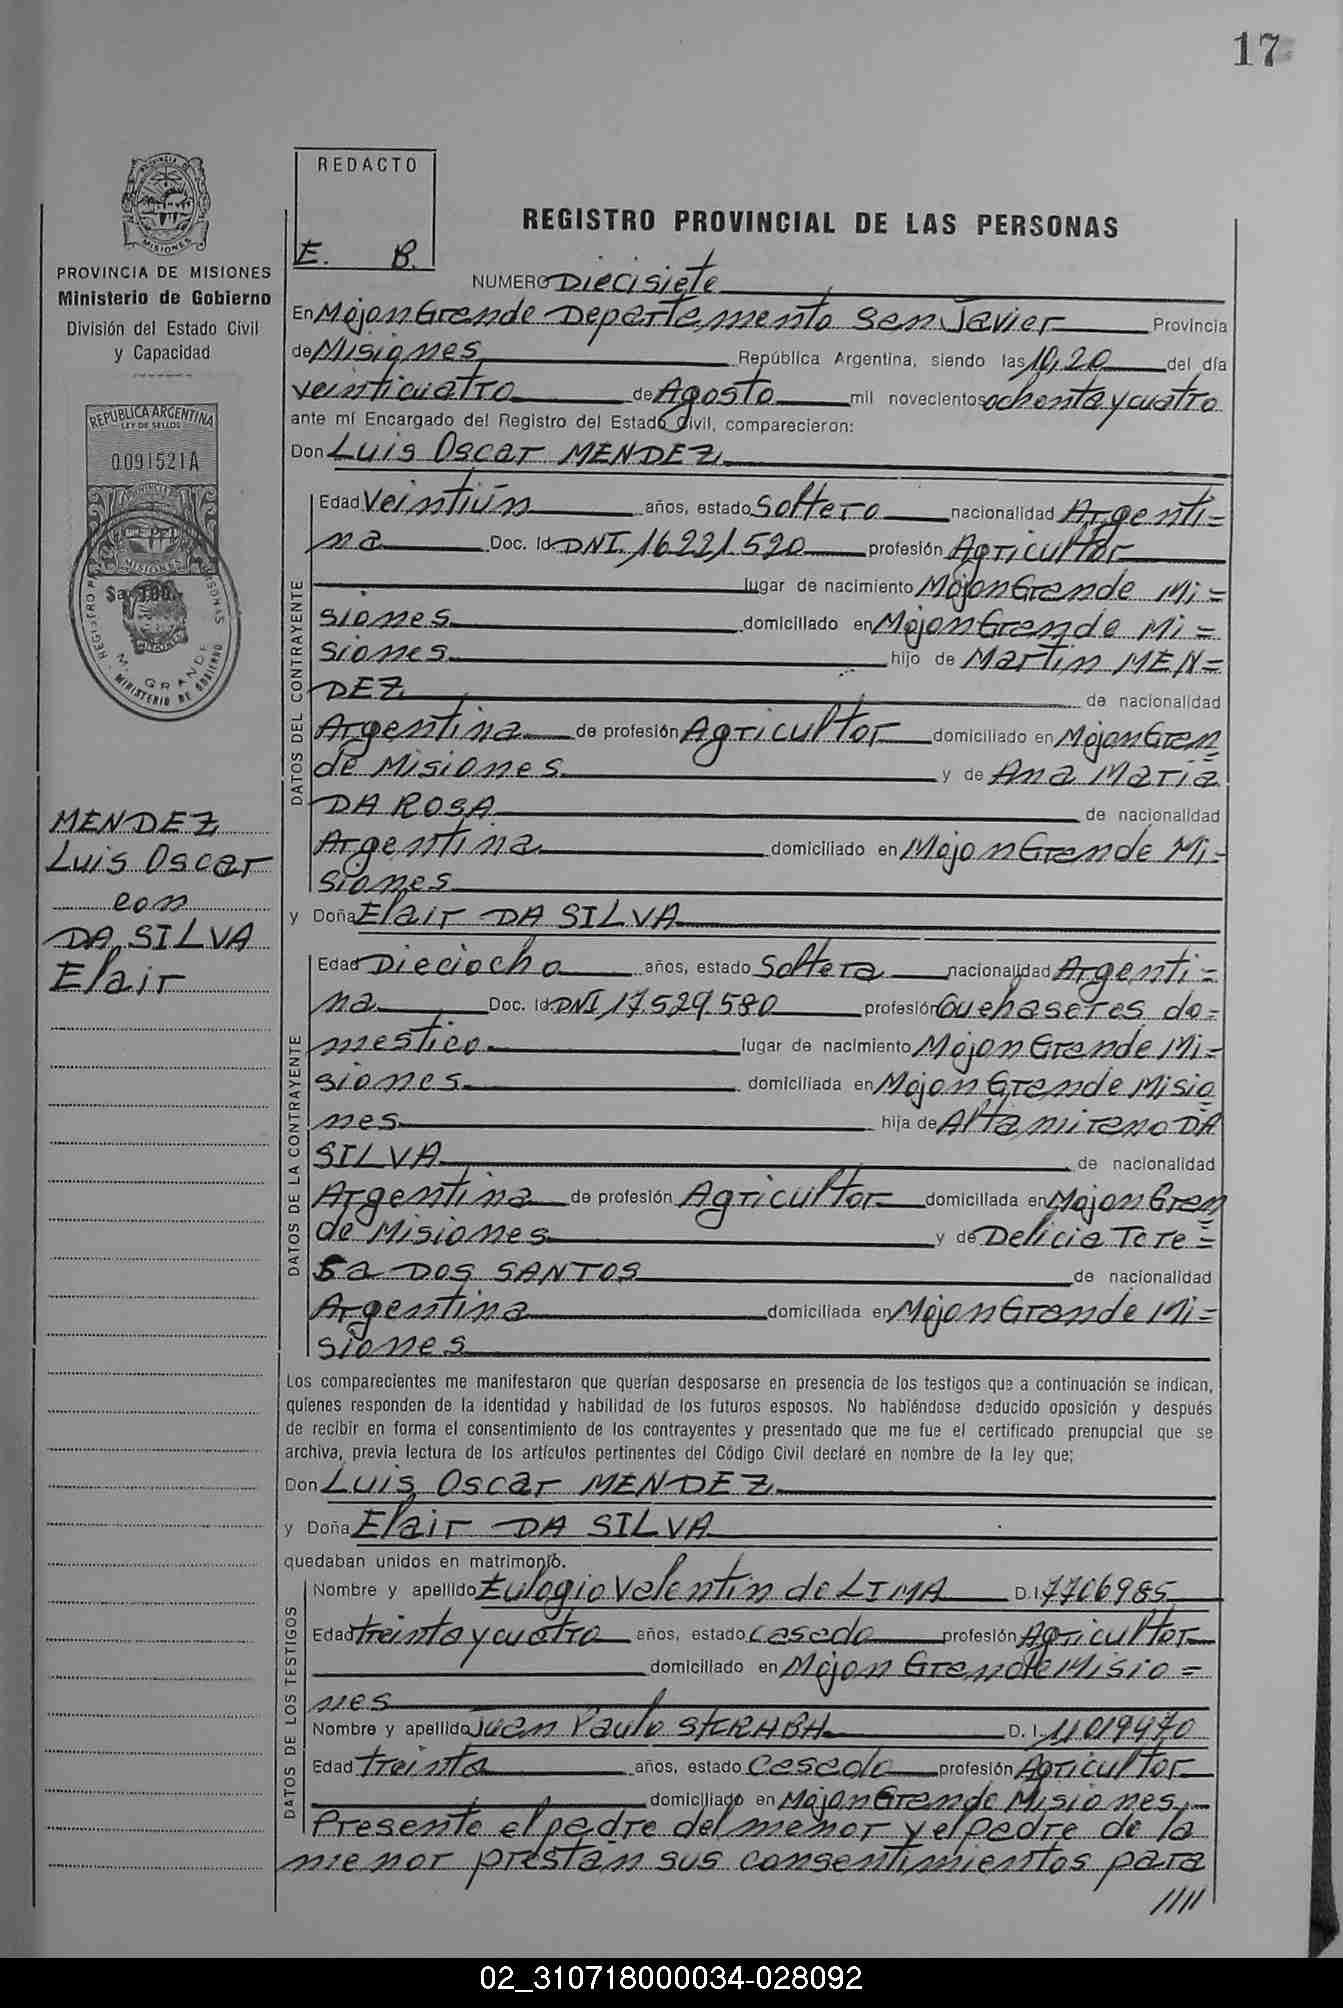 17
REDACTO
E. B.
REGISTRO PROVINCIAL DE LAS PERSONAS
PROVINCIA DE MISIONES
Ministerio de Gobierno
División del Estado Civil
y Capacidad
REPUBLICA ARGENTINA
LEY DE SELLOS
0.091521A
MISIONES
$a 100.-
M. GRANDE
MINISTERIO DE GOBIERNO
MENDEZ
Luis Oscar
con
DA SILVA
Elair
NUMERO Diecisiete
En Mojon Grande Departamento San Javier Provincia
de Misiones República Argentina, siendo las 10,20 del día
veinticuatro de Agosto mil novecientos ochenta y cuatro
ante mí Encargado del Registro del Estado Civil, comparecieron:
Don Luis Oscar MENDEZ
DATOS DEL CONTRAYENTE
Edad Veintiún años, estado Soltero nacionalidad Argenti=
na Doc. Id DNI. 16221.520 profesión Agricultor
lugar de nacimiento Mojon Grande Mi=
siones domiciliado en Mojon Grande Mi=
siones hijo de Martin MEN=
DEZ de nacionalidad
Argentina de profesión Agricultor domiciliado en Mojon Gran=
de Misiones y de Ana Maria
DA ROSA de nacionalidad
Argentina domiciliado en Mojon Grande Mi=
siones
y Doña Elair DA SILVA
DATOS DE LA CONTRAYENTE
Edad Dieciocho años, estado Soltera nacionalidad Argenti=
na Doc. Id DNI 17.529.580 profesión Quehaseres do=
mestico lugar de nacimiento Mojon Grande Mi=
siones domiciliada en Mojon Grande Misio=
nes hija de Altamirano DA
SILVA de nacionalidad
Argentina de profesión Agricultor domiciliada en Mojon Gran=
de Misiones y de Delicia Tere=
sa DOS SANTOS de nacionalidad
Argentina domiciliada en Mojon Grande Mi=
siones
Los comparecientes me manifestaron que querían desposarse en presencia de los testigos que a continuación se indican,
quienes responden de la identidad y habilidad de los futuros esposos. No habiéndose deducido oposición y después
de recibir en forma el consentimiento de los contrayentes y presentado que me fue el certificado prenupcial que se
archiva, previa lectura de los artículos pertinentes del Código Civil declaré en nombre de la ley que;
Don Luis Oscar MENDEZ
y Doña Elair DA SILVA
quedaban unidos en matrimonio.
DATOS DE LOS TESTIGOS
Nombre y apellido Eulogio Valentin de LIMA D. I. 7706985
Edad treinta y cuatro años, estado casado profesión Agricultor
domiciliado en Mojon Grande Misio=
nes
Nombre y apellido Juan Paulo D. I. 11019470
Edad treinta años, estado casado profesión Agricultor
domiciliado en Mojon Grande Misiones.
Presente el padre del menor y el padre de la
menor prestan sus consentimientos para
////
02_310718000034-028092